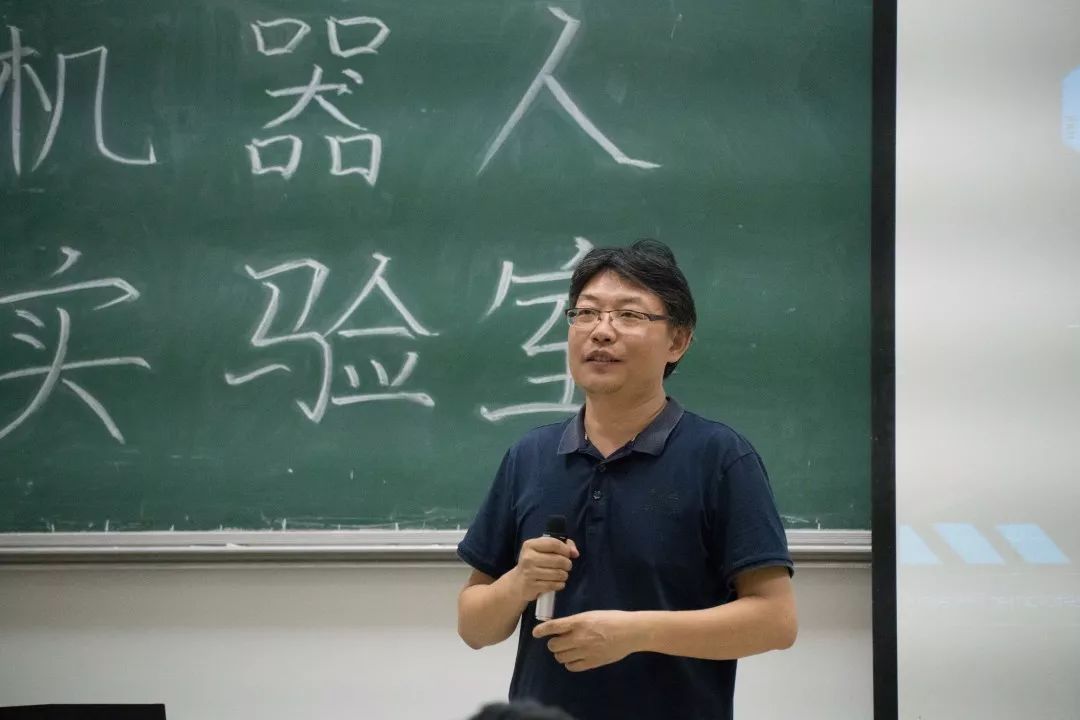 机器人
实验室